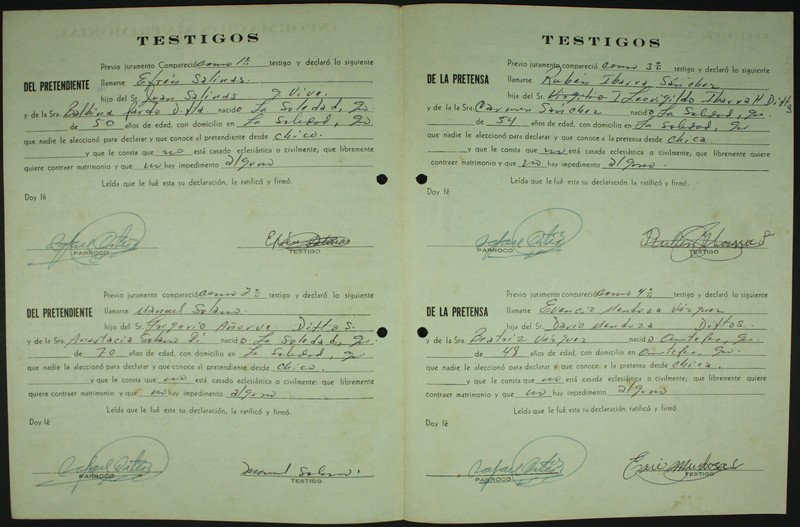 TESTIGOS
Previo juramento Compareció como 1º testigo y declaró lo siguiente
DEL PRETENDIENTE llamarse Efrén Salinas.
hijo del Sr. Juan Salinas y Vive.
y de la Sra. Balbina Pardo Difta nació La Soledad,
de 50 años de edad, con domicilio en La Soledad,
que nadie le aleccionó para declarar y que conoce al pretendiente desde chico.
y que le consta que no está casado eclesiástica o civilmente; que libremente
quiere contraer matrimonio y que no hay impedimento alguno
Leída que le fué esta su declaración, la ratificó y firmó.
Doy fé
PARROCO
TESTIGO
Previo juramento compareció como 2º testigo y declaró lo siguiente
DEL PRETENDIENTE llamarse Manuel Solano
hijo del Sr. Gregorio Añorve Diftos.
y de la Sra. Anastacia Solano nació La Soledad,
de 70 años de edad, con domicilio en La Soledad,
que nadie le aleccionó para declarar y que conoce al pretendiente desde chico.
y que le consta que no está casado eclesiástica o civilmente; que libremente
quiere contraer matrimonio y que no hay impedimento alguno
Leída que le fué esta su declaración, la ratificó y firmó.
Doy fé
Manuel Solano
PARROCO
TESTIGO
TESTIGOS
Previo juramento compareció como 3º testigo y declaró lo siguiente
DE LA PRETENSA llamarse Rubén Ibarra Sánchez
hijo del Sr. Leovigildo Ibarra
y de la la Sra. Carmen Sánchez nació La Soledad,
de 54 años de edad, con domicilio en La Soledad,
que nadie le aleccionó para declarar y que conoce a la pretensa desde chica.
y que le consta que no está casada eclesiástica o civilmente; que libremente quiere
contraer matrimonio y que no hay impedimento alguno.
Leída que le fué esta su declaración, la ratificó y firmó.
Doy fé
PARROCO
TESTIGO
Previo juramento compareció como 4º testigo y declaró lo siguiente
DE LA PRETENSA llamarse Evencio Mendoza Vázquez
hija del Sr. Darío Mendoza Diftos.
y de la Sra. Beatriz Vázquez nació
de 48 años de edad, con domicilio en
que nadie le aleccionó para declarar y que conoce. a la pretensa desde chica.
y que le consta que no está casada eclesiástica o civilmente; que libremente quiere
contraer matrimonio y que no hay impedimento alguno
Leída que le fué esta su declaración ratificó y firmó.
Doy fé
PARROCO
TESTIGO